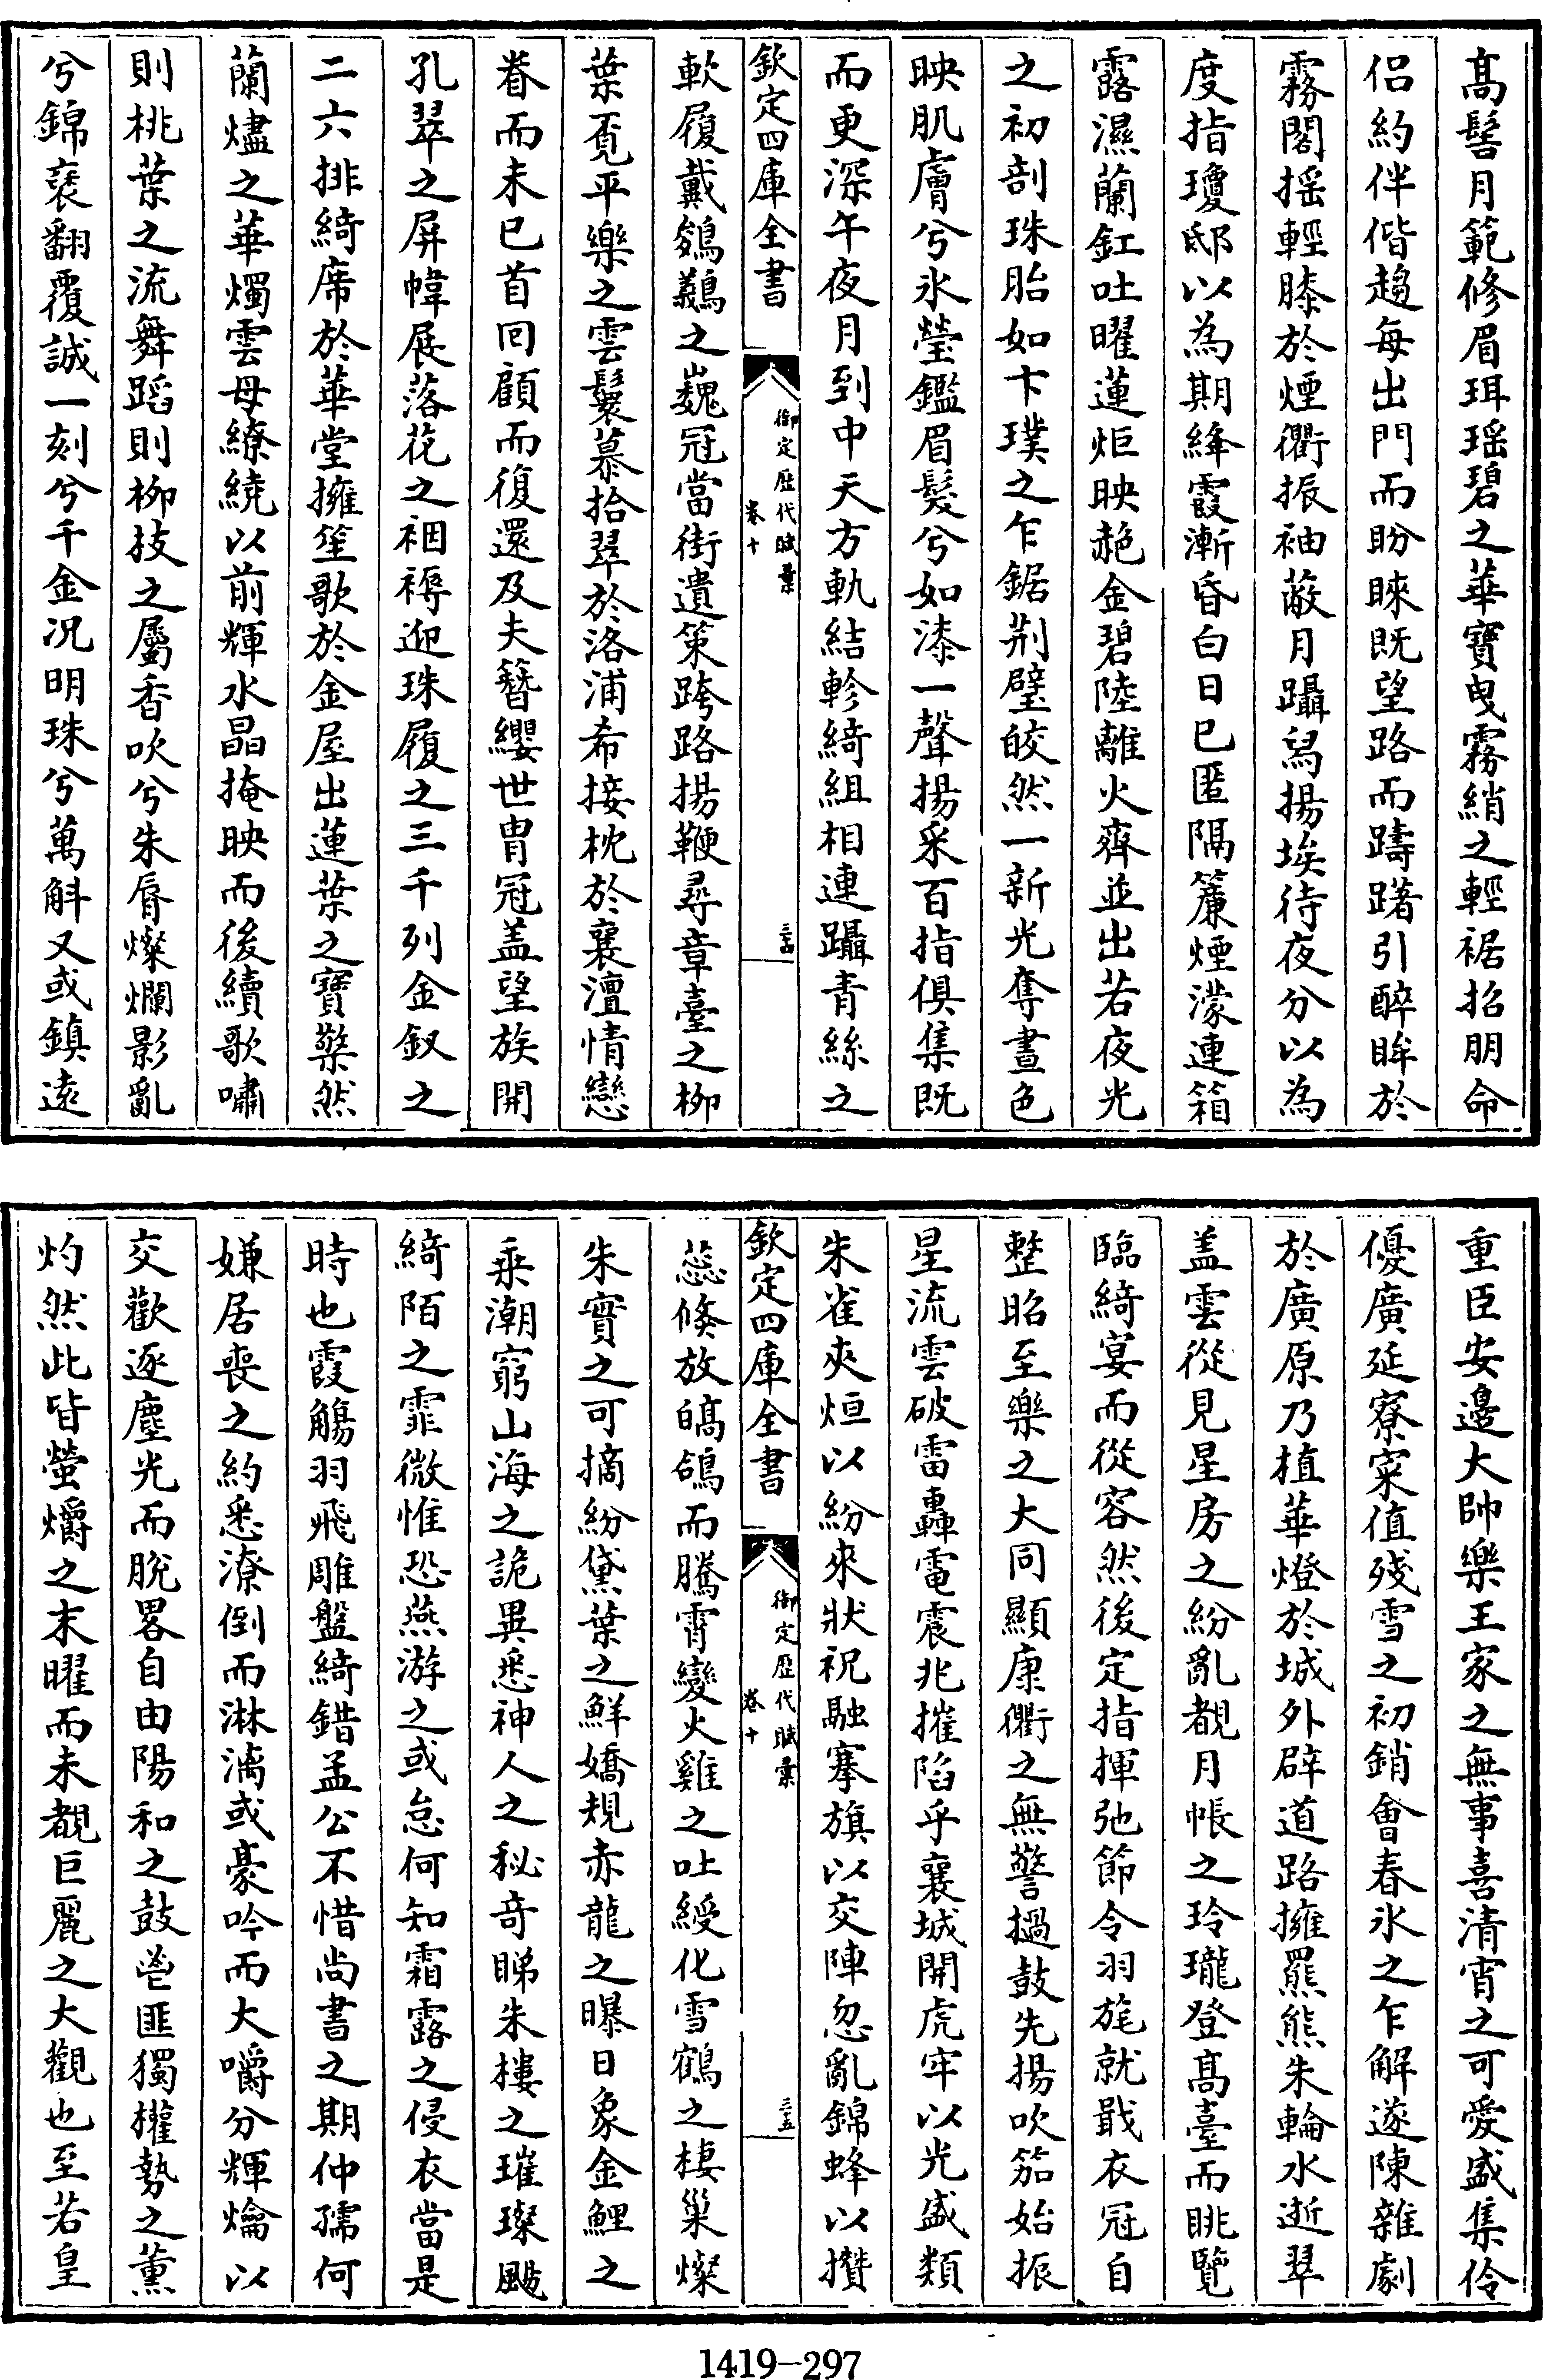 髙髻月範修眉珥瑶碧之華寳曳霧綃之輕裾招朋命
侣約伴偕趨每出門而盼睞既望路而躊躇引醉眸於
霧閣揺輕膝於煙衢振袖蔽月躡舄揚埃待夜分以為
度指瓊邸以為期絳霞漸昏白日已匿隔簾煙濛連箱
露濕蘭釭吐曜蓮炬映赩金碧陸離火齊並出若夜光
之初剖珠胎如卞璞之乍鋸荆璧皎然一新光奪晝色
映肌膚兮氷瑩鑑眉髮兮如漆一聲揚采百指俱集既
而更深午夜月到中天方軌結軫綺組相連躡青絲之
欽定四庫全書
御定歴代賦彙
卷十
三四
軟履戴鵕鸃之巍冠當街遺策跨路揚鞭尋章臺之柳
葉覔平樂之雲鬟慕拾翠於洛浦希接枕於襄澶情戀
眷而未已首回顧而復還及夫簪纓世胄冠盖望族開
孔翠之屏幃展落花之裀褥迎珠履之三千列金釵之
二六排綺席於華堂擁笙歌於金屋出蓮葉之寳檠然
蘭燼之華燭雲母繚繞以前輝水晶掩映而後續歌嘯
則桃葉之流舞蹈則柳枝之屬香吹兮朱脣燦爛影亂
兮錦裘翻覆誠一刻兮千金况明珠兮萬斛又或鎮逺
重臣安邊大帥樂王家之無事喜清宵之可愛盛集伶
優廣延寮寀值殘雪之初銷㑹春氷之乍解遂陳雜劇
於廣原乃植華燈於城外辟道路擁羆熊朱輪水逝翠
盖雲從見星房之紛亂覩月帳之玲瓏登髙臺而眺覽
臨綺宴而從容然後定指揮弛節令羽旄就戢衣冠自
整昭至樂之大同顯康衢之無警撾鼓先揚吹笳始振
星流雲破雷轟電震兆摧陷乎襄城開虎牢以光盛類
朱雀夾烜以紛來狀祝融搴旗以交陣忽亂錦蜂以攢
欽定四庫全書
御定歴代賦彙
卷十
三五
蕊倐放皜鴿而騰霄變火雞之吐綬化雪鶴之棲巢燦
朱實之可摘紛黛葉之鮮嬌規赤龍之曝日象金鯉之
乗潮窮山海之詭異悉神人之秘竒睇朱樓之璀璨颺
綺陌之霏微惟恐燕游之或怠何知霜露之侵衣當是
時也霞觴羽飛雕盤綺錯孟公不惜尚書之期仲孺何
嫌居喪之約悉潦倒而淋漓或豪吟而大嚼分輝爚以
交歡逐塵光而脫畧自由陽和之鼓鬯匪獨權勢之薰
灼然此皆螢爝之末曜而未覩巨麗之大觀也至若皇
1419-297